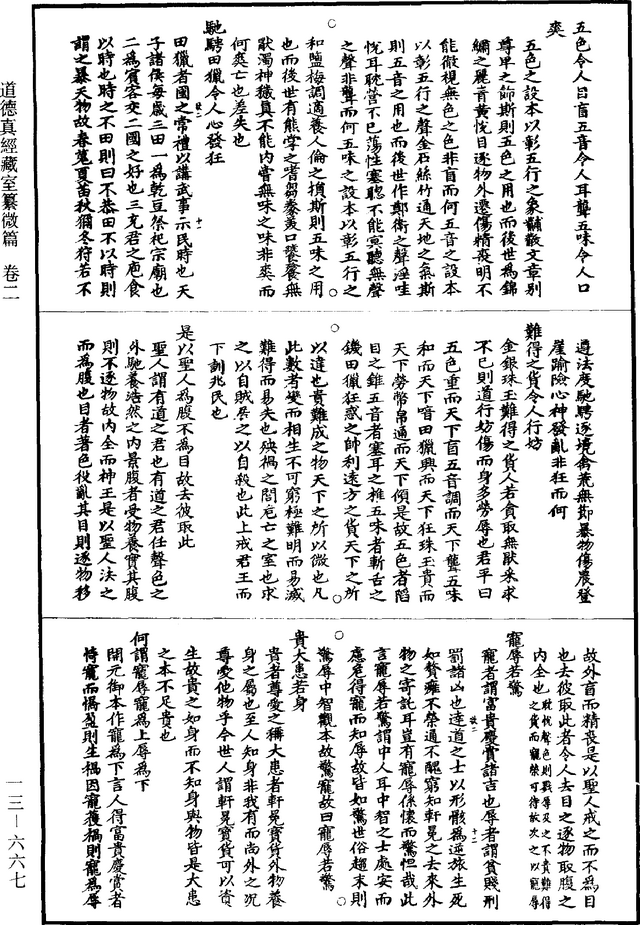 五色令人目盲五音令人耳聾五味令人口
爽
五色之設本以彰五行之象黼黻文章別
尊卑之飾斯則五色之用也而後世為錦
繡之麗音黃悅目逐物外遷傷精喪明不
能微視無色之色非盲而何五音之設本
以彰五行之聲金石絲竹通天地之氣斯
則五音之用也而後世作鄭衛之聲淫哇
悅耳耽營不已蕩性塞聰不能冥聽無聲
之聲非聾而何五味之設本以彰五行之
和鹽梅調適養人倫之損斯則五味之用
也而後世有熊掌之嗜芻豢羨口饕餮無
猒濁神穢員不能內嘗無味之味非爽而
何爽亡也差失也
馳騁田獵令人心發狂
田獵者國之常禮以講武事示民時也天
子諸侯每歲三田一為乾豆祭祀宗廟也
二為賓客交二國之好也三充君之庖食
以時也時之不田則曰不恭田不以時則
謂之暴天物故春蒐夏苗秋獮冬狩若不
遵法度馳騁逐境禽荒無節暴物傷農登
崖踰險心神發亂非狂而何
難得之貨令人行妨
金銀珠玉難得之貨人若貪取無猒采求
不已則道行妨傷而身多勞辱也君平曰
五色重而天下盲五音調而天下聾五味
和而天下喑田獵興而天下狂珠玉貴而
天下勞幣帛通而天下傾是故五色者陷
目之錐五音者塞耳之椎五味者斬舌之
鐖田獵狂惑之帥利遠方之貨天下之所
以違也貴難成之物天下之所以微也凡
此數者變而相生不可窮極難明而易滅
難得而易失也殃禍之閭危亡之室也求
之以自賊居之以自殺也此上戒君王而
下訓兆民也
是以聖人為腹不為目故去彼取此
聖人謂有道之君也有道之君任聲色之
外馳養浩然之內景腹者受物養實其腹
則不逐物故內全而神王是以聖人法之
而為腹也目者著色役亂其目則逐物移
故外盲而精喪是以聖人戒之而不為目
也去彼取此者令人去目之逐物取腹之
內全也耽悅聲色則戮辱及之不貴難得
之貨而寵榮可待故次之以寵辱
寵辱若驚
寵者謂富貴慶賞諸吉也辱者謂貧賤刑
罰諸凶也達道之士以形骸為逆旅生死
如贅癰不榮通不醜窮知軒冕之去來外
物之寄託耳豈有寵辱係懷而驚怛哉此
言寵辱若驚謂中人耳中智之士處安而
慮危得寵而知辱故皆如驚世俗趨末則
驚辱中智觀本故驚寵故曰寵辱若驚
貴大患若身
貴者尊愛之稱大患者軒冕寶貨外物養
身之屬也至人知身非我有而尚外之況
尊愛他物乎今世人謂軒冕寶貨可以資
生故貴之如身而不知身與物皆是大患
之本不足貴也
何謂寵辱寵為上辱為下
開元御本作寵為下言人得富貴慶賞者
恃寵而憍盈則生禍因寵獲禍則寵為辱
道德真經藏室纂微篇 卷二
一三—六六七